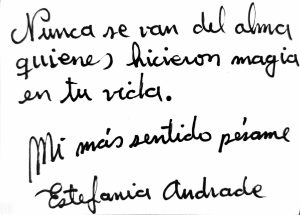 Nunca se van del alma
quienes hicieron magia
en tu vida.
Mi más sentido pésame
Estefania Andrade